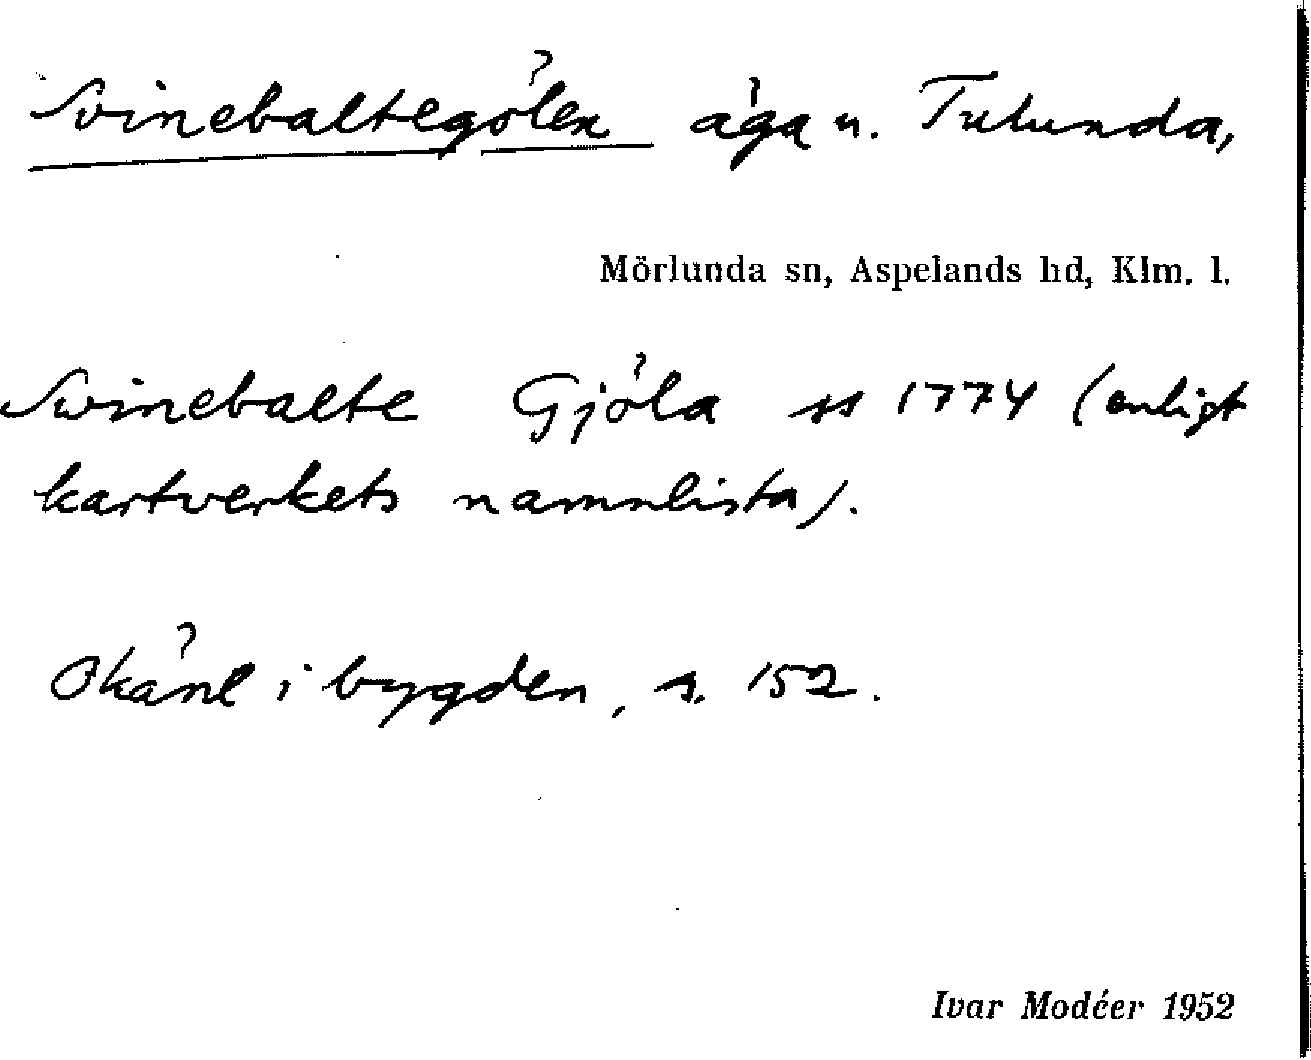 Svinebaltegölen äga u. Tulunda,
Mörlunda sn, Aspelands hd, Klm. l.
Swinebalte Gjöla ss 1774 (enligt
kartverkets namnlista).
Okänt i bygden, s. 152.
Ivar Modéer 1952